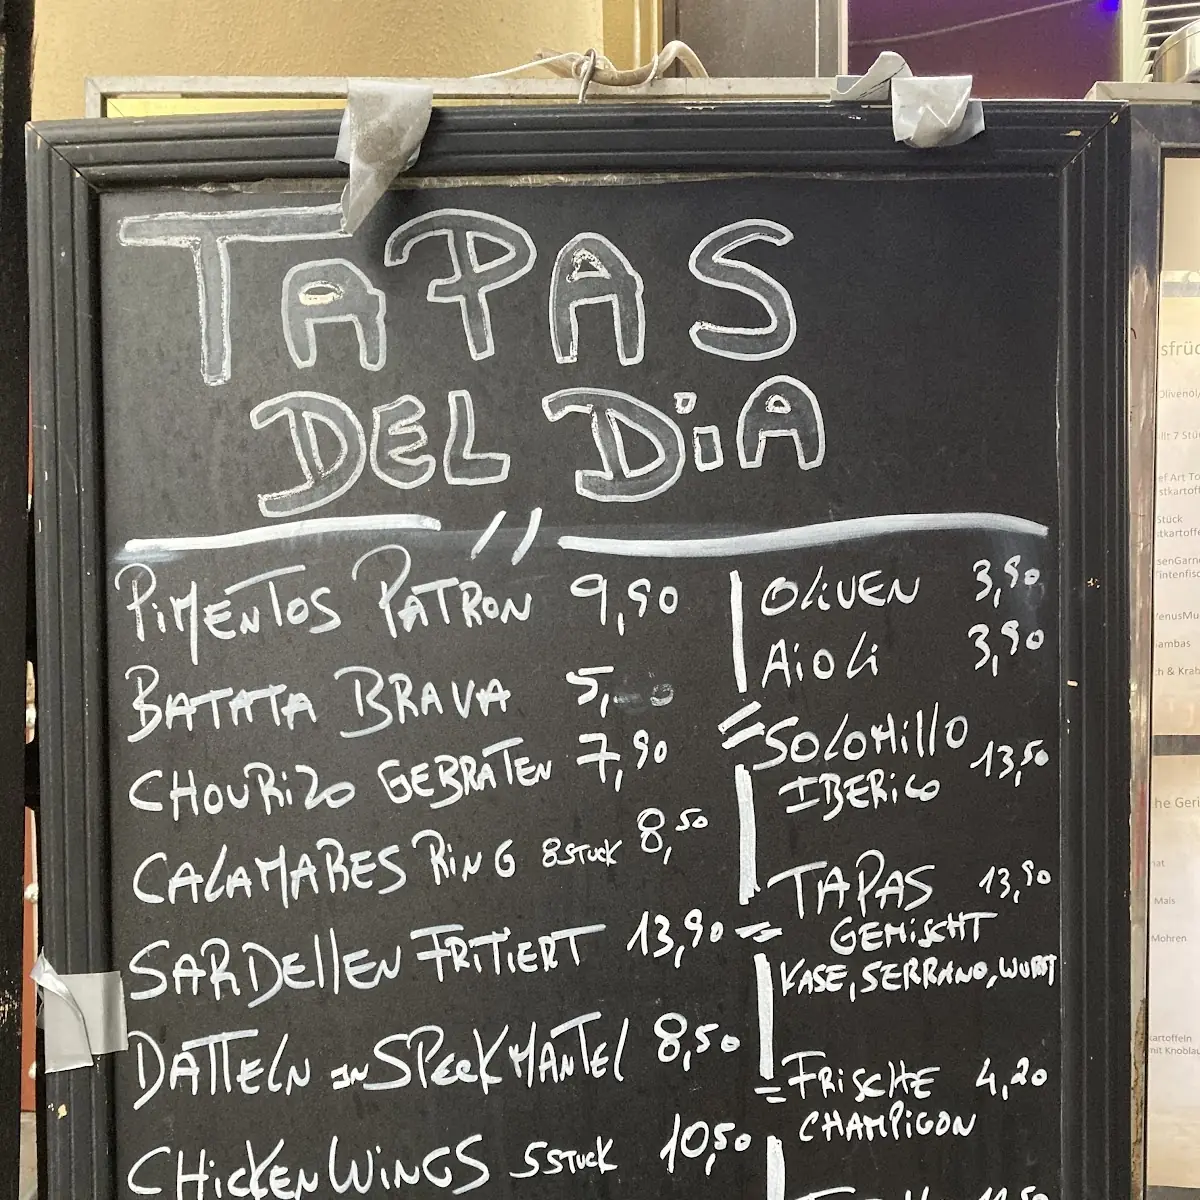 TAPAS
DEL DiA
PIMENTOS PATRON 9,90
BATATA BRAVA 5,
CHOURIZO GEBRATEN 7,90
CALAMARES RING 8 STUCK 8,50
SARDELLEN FRITIERT 13,90
DATTELN IN SPECKMANTEL 8,50
CHICKEN WINGS 5 STUCK 10,50
OLIVEN 3,90
AIOLI 3,90
SOLOMILLO
IBERICO 13,50
TAPAS 13,90
GEMISCHT
KASE, SERRANO, WURST
FRISCHE 4,20
CHAMPIGON
sfrüc
Olivenöl/
llt 7 Stü
ef Art To
stkartoff
Stück
tkartoffe
senGarne
Tintenfisc
VenusMu
Gambas
ch & Krab
che Geri
nat
Mais
Mohren
kartoffeln
mit Knoblau